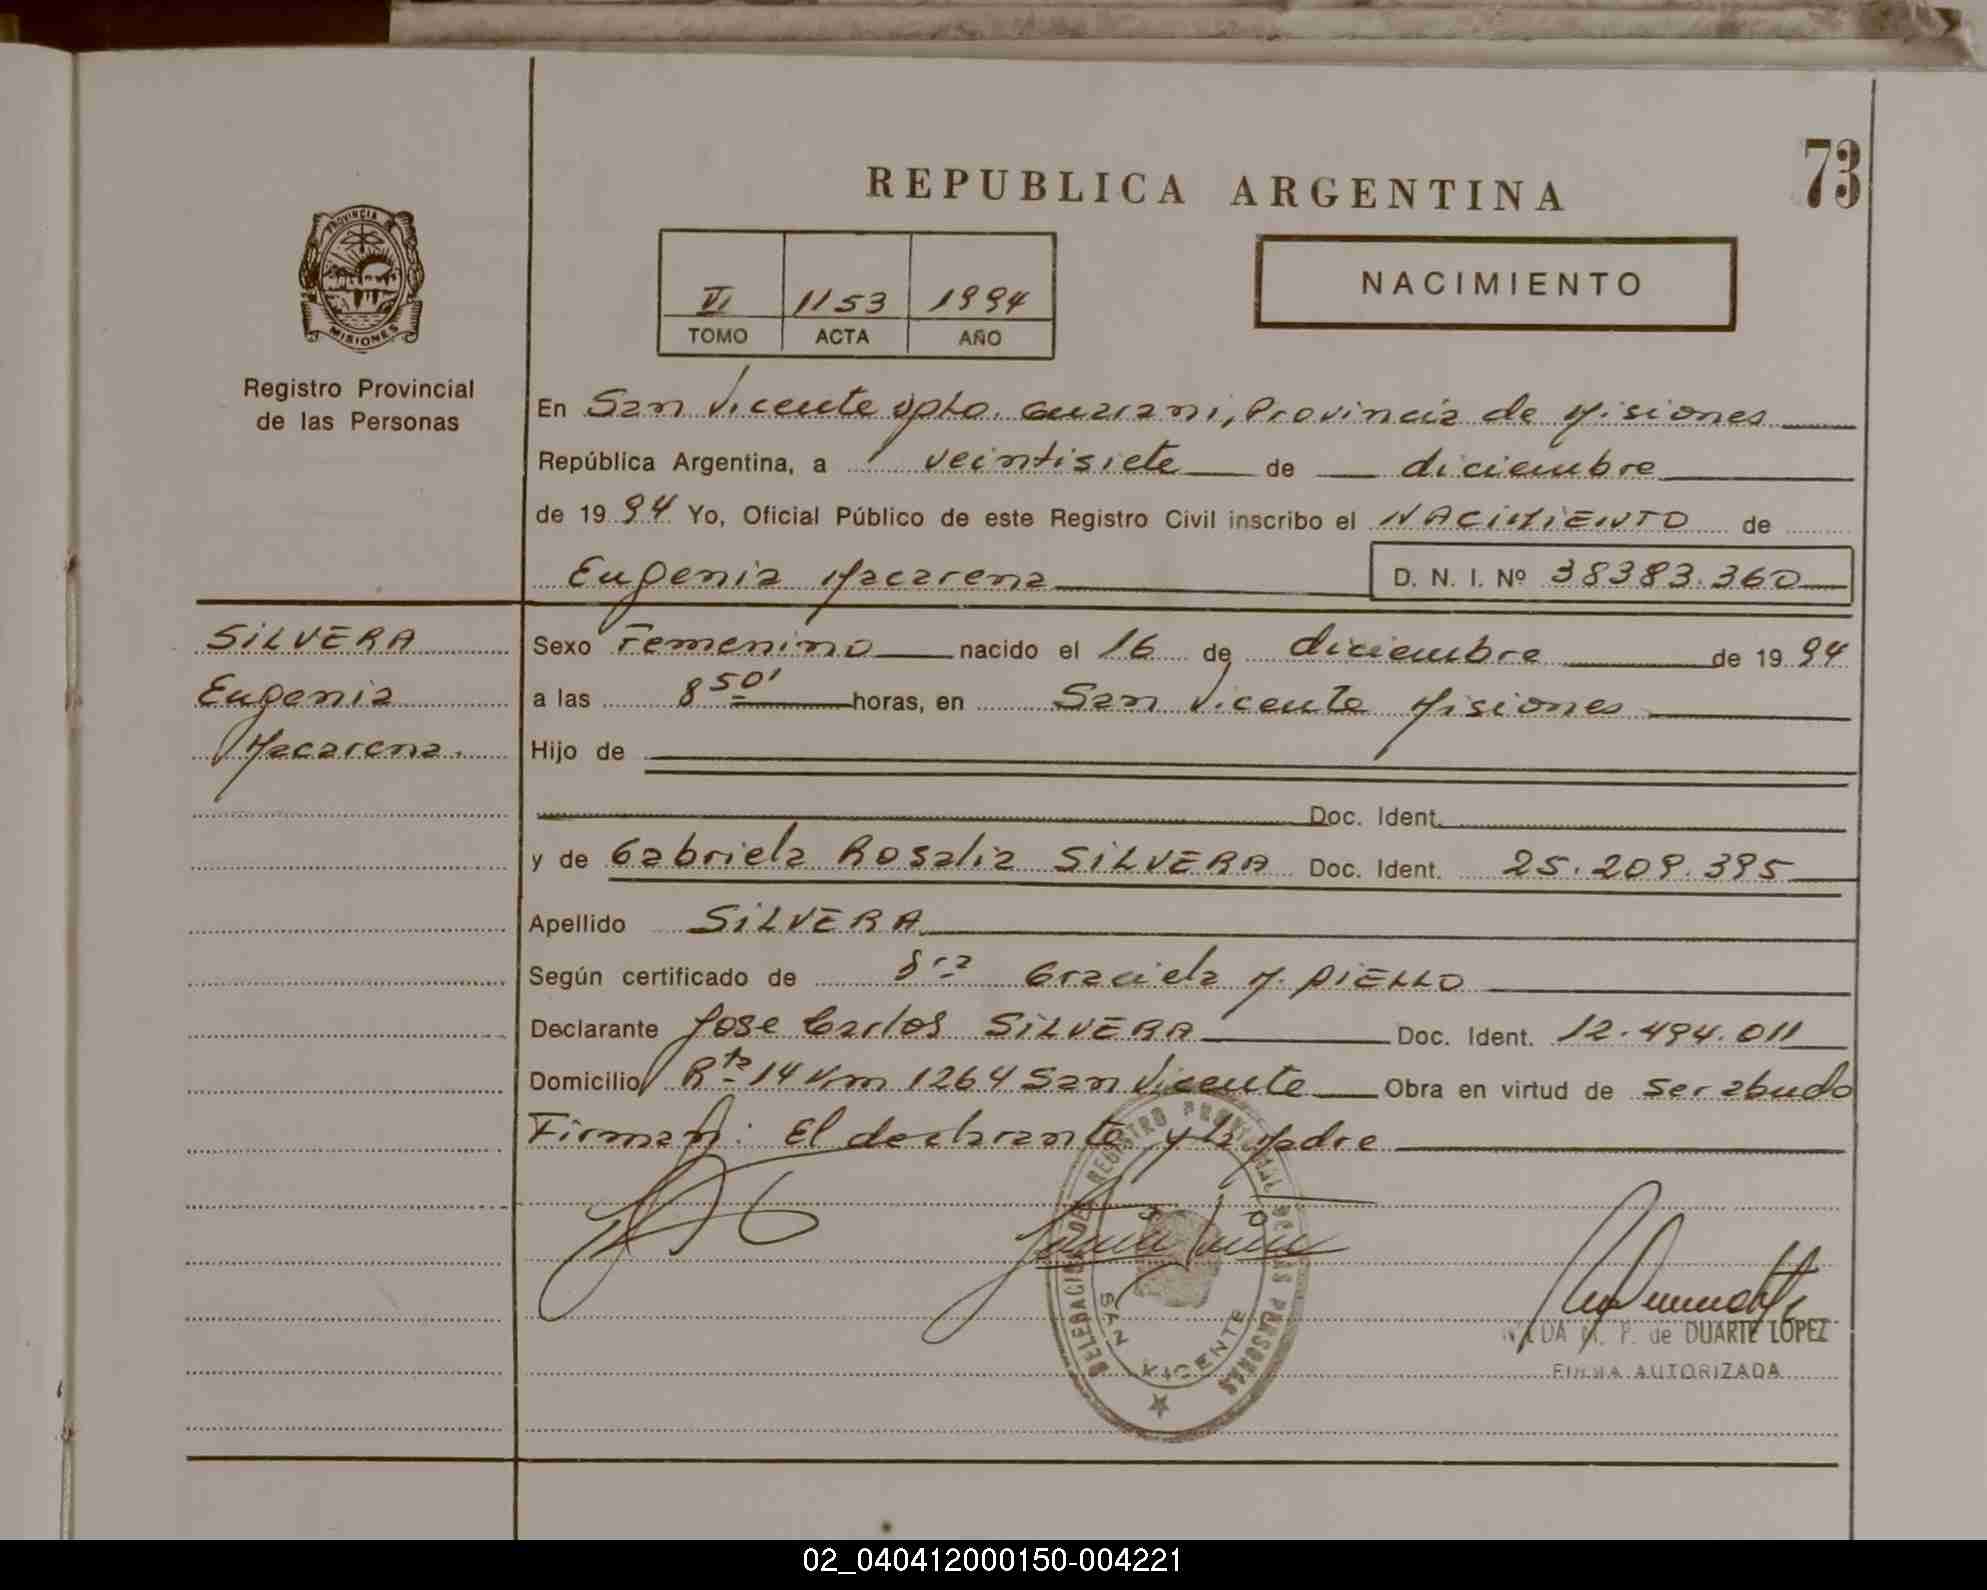 73
REPUBLICA ARGENTINA
PROVINCIA
MISIONES
Registro Provincial
de las Personas
NACIMIENTO
VI 1153 1994
TOMO ACTA AÑO
En San Vicente Dpto. Guarani, Provincia de Misiones
República Argentina, a veintisiete de diciembre
de 1994 Yo, Oficial Público de este Registro Civil inscribo el NACIMIENTO de
Eugenia Macarena D. N. I. Nº 38383.360
SILVERA
Eugenia
Macarena.
Sexo Femenino nacido el 16 de diciembre de 1994
a las 8 50' horas, en San Vicente Misiones
Hijo de
Doc. Ident.
y de Gabriela Rosalia SILVERA Doc. Ident. 25.209.395
Apellido SILVERA
Según certificado de Dra Graciela M. DIELLO
Declarante Jose Carlos SILVERA Doc. Ident. 12.494.011
Domicilio Rta 14 Km 1264 San Vicente Obra en virtud de ser abudo
Firman: El declarante y la Madre
DELEGACION REGISTRO PROVINCIAL DE LAS PERSONAS
SAN VICENTE
M. P. de DUARTE LOPEZ
FIRMA AUTORIZADA
02_040412000150-004221